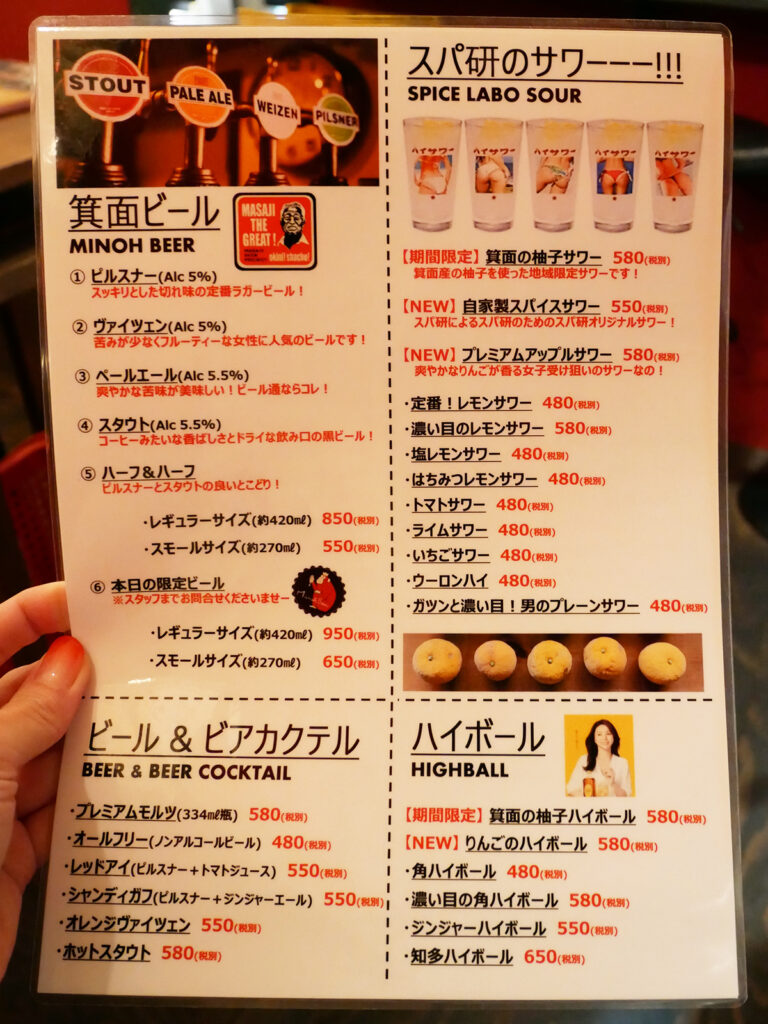 STOUT
PALE ALE
WEIZEN
PILSNER
箕面ビール
MINOH BEER
MASAJI
THE
GREAT!
okini! shacho!
① ピルスナー(Alc 5%)
スッキリとした切れ味の定番ラガービール！
② ヴァイツェン(Alc 5%)
苦みが少なくフルーティーな女性に人気のビールです！
③ ペールエール(Alc 5.5%)
爽やかな苦味が美味しい！ビール通ならコレ！
④ スタウト(Alc 5.5%)
コーヒーみたいな香ばしさとドライな飲み口の黒ビール！
⑤ ハーフ＆ハーフ
ピルスナーとスタウトの良いとこどり！
・レギュラーサイズ(約420㎖) 850(税別)
・スモールサイズ(約270㎖) 550(税別)
⑥ 本日の限定ビール
※スタッフまでお問合せくださいませー
・レギュラーサイズ(約420㎖) 950(税別)
・スモールサイズ(約270㎖) 650(税別)
スパ研のサワーーー!!!
SPICE LABO SOUR
ハイサワー
ハイサワー
ハイサワー
ハイサワー
ハイサワー
【期間限定】箕面の柚子サワー 580(税別)
箕面産の柚子を使った地域限定サワーです！
【NEW】自家製スパイスサワー 550(税別)
スパ研によるスパ研のためのスパ研オリジナルサワー！
【NEW】プレミアムアップルサワー 580(税別)
爽やかなりんごが香る女子受け狙いのサワーなの！
・定番！レモンサワー 480(税別)
・濃い目のレモンサワー 580(税別)
・塩レモンサワー 480(税別)
・はちみつレモンサワー 480(税別)
・トマトサワー 480(税別)
・ライムサワー 480(税別)
・いちごサワー 480(税別)
・ウーロンハイ 480(税別)
・ガツンと濃い目！男のプレーンサワー 480(税別)
ビール & ビアカクテル
BEER & BEER COCKTAIL
・プレミアムモルツ(334㎖瓶) 580(税別)
・オールフリー(ノンアルコールビール) 480(税別)
・レッドアイ(ピルスナー＋トマトジュース) 550(税別)
・シャンディガフ(ピルスナー＋ジンジャーエール) 550(税別)
・オレンジヴァイツェン 550(税別)
・ホットスタウト 580(税別)
ハイボール
HIGHBALL
【期間限定】箕面の柚子ハイボール 580(税別)
【NEW】りんごのハイボール 580(税別)
・角ハイボール 480(税別)
・濃い目の角ハイボール 580(税別)
・ジンジャーハイボール 550(税別)
・知多ハイボール 650(税別)